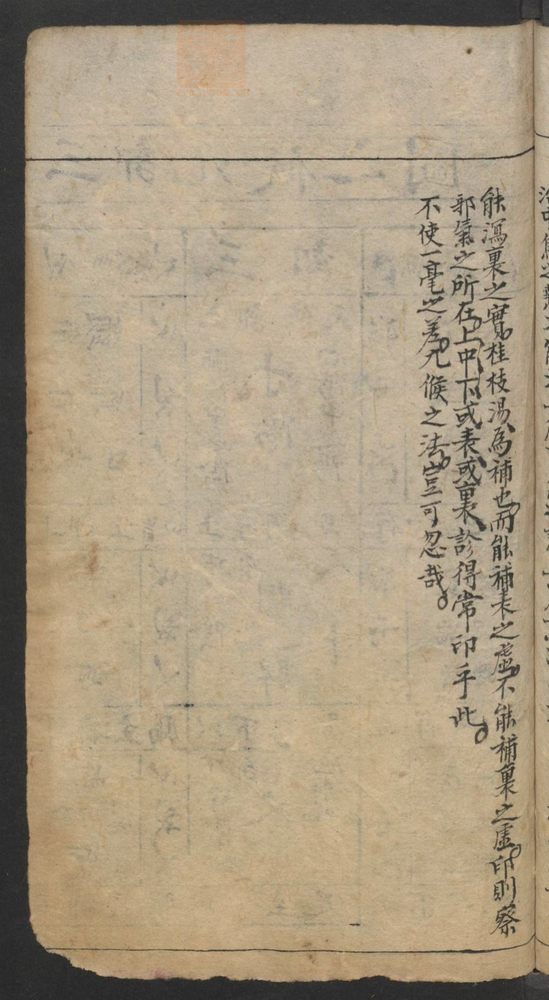 能瀉裏之實桂枝湯為補也而能補表之虛不能補裏之虛印則察
邪氣之所在上中下或表或裏診得常印乎此
不使一毫之差九候之法豈可忽哉